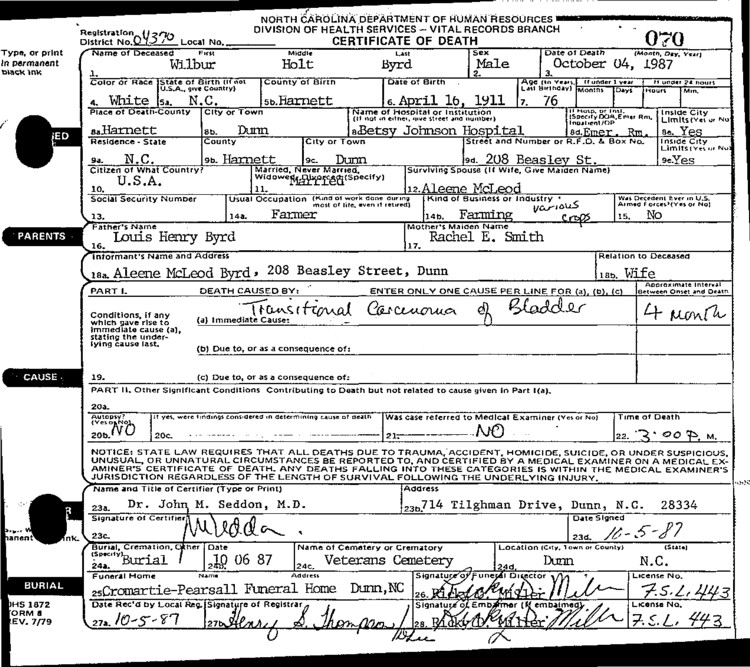 NORTH CAROLINA DEPARTMENT OF HUMAN RESOURCES
DIVISION OF HEALTH SERVICES – VITAL RECORDS BRANCH
Registration District No. 04370 Local No.
CERTIFICATE OF DEATH
070
Type, or print in permanent black ink
Name of Deceased First Middle Last Sex Date of Death (Month, Day, Year)
1. Wilbur Holt Byrd 2. Male 3. October 04, 1987
Color or Race State of Birth (If not U.S.A., give Country) County of Birth Date of Birth Age (In Years, Last Birthday) If under 1 year Months Days If under 24 hours Hours Min.
4. White 5a. N.C. 5b. Harnett 6. April 16, 1911 7. 76
Place of Death-County City or Town Name of Hospital or Institution (If not in either, give street and number) If Hosp. or Inst. (Specify DOA, Emer Rm, Inpatient/OP Inside City Limits (Yes or No)
8a. Harnett 8b. Dunn 8 Betsy Johnson Hospital 8d. Emer. Rm. 8e. Yes
Residence - State County City or Town Street and Number or R.F.D. & Box No. Inside City Limits (Yes or No)
9a. N.C. 9b. Harnett 9c. Dunn 9d. 208 Beasley St. 9e Yes
Citizen of What Country? Married, Never Married, Widowed, Divorced (Specify) Surviving Spouse (If Wife, Give Maiden Name)
10. U.S.A. 11. Married 12. Aleene McLeod
Social Security Number Usual Occupation (Kind of work done during most of life, even if retired) Kind of Business or Industry Was Decedent Ever in U.S. Armed Forces? (Yes or No)
13. 14a. Farmer 14b. Farming various crops 15. No
PARENTS
Father's Name Mother's Maiden Name
16. Louis Henry Byrd 17. Rachel E. Smith
Informant's Name and Address Relation to Deceased
18a. Aleene McLeod Byrd, 208 Beasley Street, Dunn 18b. Wife
PART I. DEATH CAUSED BY: ENTER ONLY ONE CAUSE PER LINE FOR (a), (b), (c) Approximate Interval Between Onset and Death
Conditions, if any which gave rise to immediate cause (a), stating the underlying cause last.
(a) Immediate Cause: Transitional Carcenoma of Bladder 4 month
(b) Due to, or as a consequence of:
CAUSE
19. (c) Due to, or as a consequence of:
PART II. Other Significant Conditions Contributing to Death but not related to cause given in Part I(a).
20a.
Autopsy? (Yes or No) If yes, were findings considered in determining cause of death Was case referred to Medical Examiner (Yes or No) Time of Death
20b. NO 20c. 21. NO 22. 3:00 P. M.
NOTICE: STATE LAW REQUIRES THAT ALL DEATHS DUE TO TRAUMA, ACCIDENT, HOMICIDE, SUICIDE, OR UNDER SUSPICIOUS,
UNUSUAL, OR UNNATURAL CIRCUMSTANCES BE REPORTED TO, AND CERTIFIED BY A MEDICAL EXAMINER ON A MEDICAL EX-
AMINER'S CERTIFICATE OF DEATH. ANY DEATHS FALLING INTO THESE CATEGORIES IS WITHIN THE MEDICAL EXAMINER'S
JURISDICTION REGARDLESS OF THE LENGTH OF SURVIVAL FOLLOWING THE UNDERLYING INJURY.
Name and Title of Certifier (Type or Print) Address
23a. Dr. John M. Seddon, M.D. 23b. 714 Tilghman Drive, Dunn, N.C. 28334
Signature of Certifier Date Signed
23c. 23d. 10-5-87
Burial, Cremation, Other (Specify) Date Name of Cemetery or Crematory Location (City, Town or County) (State)
24a. Burial 24b. 10 06 87 24c. Veterans Cemetery 24d. Dunn N.C.
BURIAL
Funeral Home Name Address Signature of Funeral Director License No.
25 Cromartie-Pearsall Funeral Home Dunn, NC 26. F.S.L. 443
Date Rec'd by Local Reg. Signature of Registrar Signature of Embalmer (If embalmed) License No.
27a. 10-5-87 27b. Henry S. Thompson 28. Ricky D. Miller F.S.L. 443
DHS 1872
FORM 8
REV. 7/79